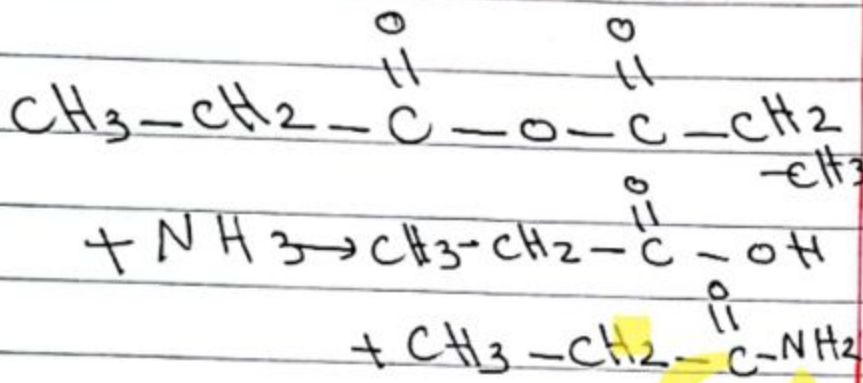 O O
|| ||
CH3-CH2-C-O-C-CH2
-CH3
O
||
+NH3→CH3-CH2-C-OH
O
||
+CH3-CH2-C-NH2